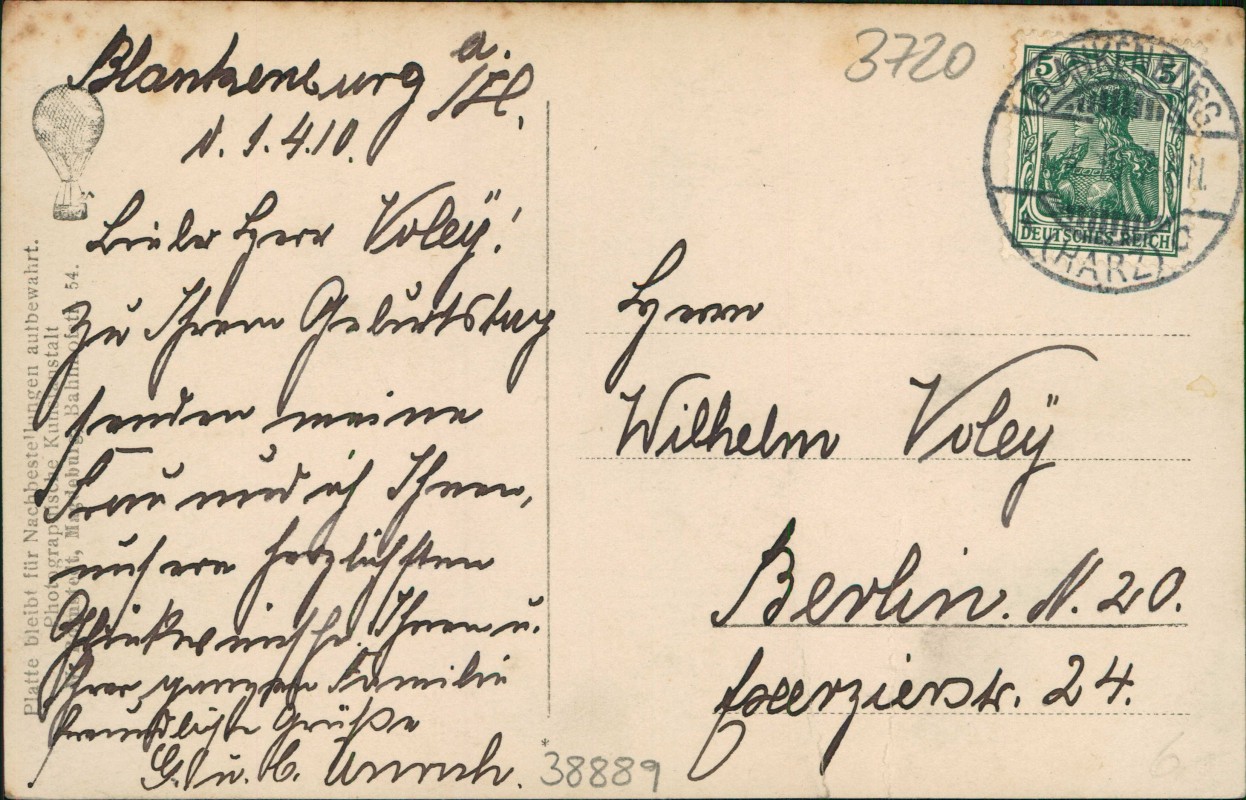 Blankenburg a./H.
d. 1.4.10.
Lieber Herr Voleÿ!
Zu Ihrem Geburtstag
senden meine
Frau und ich Ihnen,
unsere herzlichsten
Glückwünsche. Ihnen u.
Ihrer ganzen Familie
freundliche Grüße
G. u. C.
3720
5 5
DEUTSCHES REICH
BLANKENBURG
(HARZ)
Herrn
Wilhelm Voleÿ
Berlin. N. 20.
Exerzierstr. 24.
38889
6
Platte bleibt für Nachbestellungen aufbewahrt.
Photographische Kunstanstalt
Magdeburg, Bahnhofstr. 54.